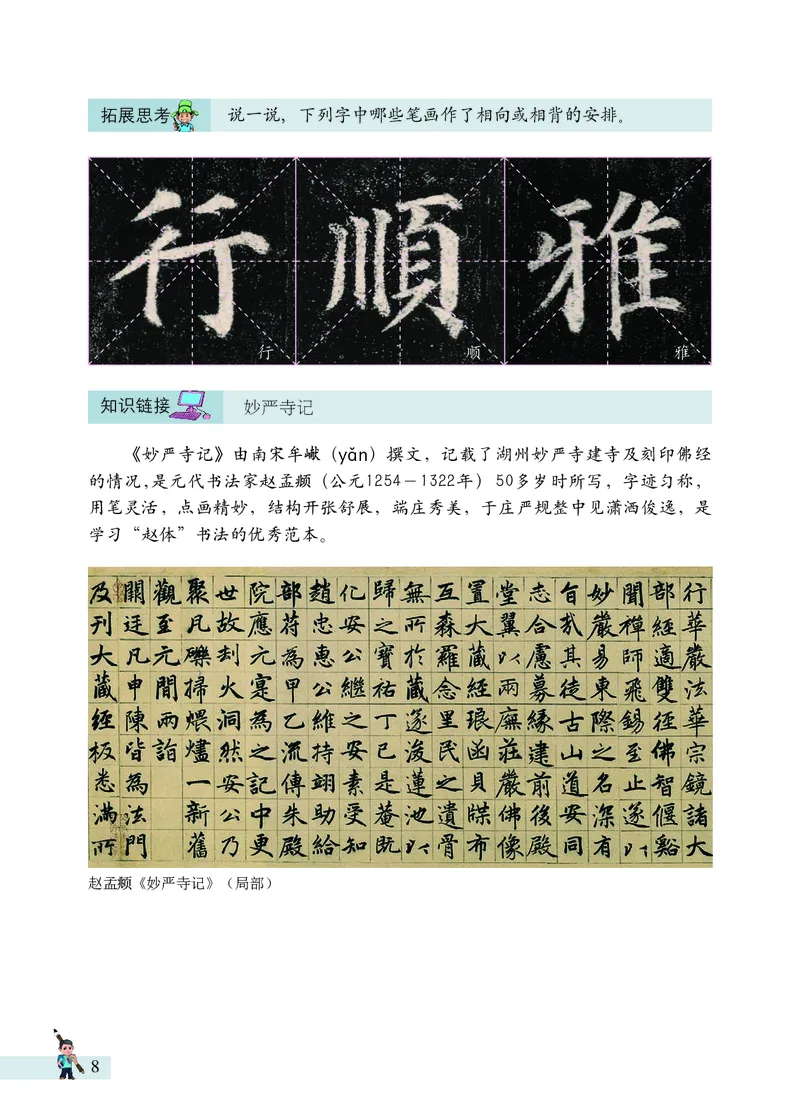 拓展思考
说一说，下列字中哪些笔画作了相向或相背的安排。
行 順 雅
行 顺 雅
知识链接
妙严寺记
《妙严寺记》由南宋牟巘（yǎn）撰文，记载了湖州妙严寺建寺及刻印佛经
的情况，是元代书法家赵孟頫（公元1254－1322年）50多岁时所写，字迹匀称，
用笔灵活，点画精妙，结构开张舒展，端庄秀美，于庄严规整中见潇洒俊逸，是
学习“赵体”书法的优秀范本。
行華嚴法華宗鏡諸大
部經適雙徑佛智偃谿
聞禪師飛錫至止遂以
妙嚴易東際之名深有
旨哉其徒古山道安同
志合慮募緣建前後殿
堂翼以兩廡莊嚴佛像
置大藏經琅函貝牒布
互森羅念里民之遺骨
無所於藏遂浚蓮池以
歸之寶祐丁巳是菴既
化安公繼之安素受知
趙忠惠公維持翊助給
部符為甲乙流傳朱殿
院應元寔為之記中更
世故刦火洞然安公乃
聚凡礫掃煨燼一新舊
觀至元間兩詣
闕廷凡申陳皆為法門
及刊大藏經板悉滿所
赵孟頫《妙严寺记》（局部）
8